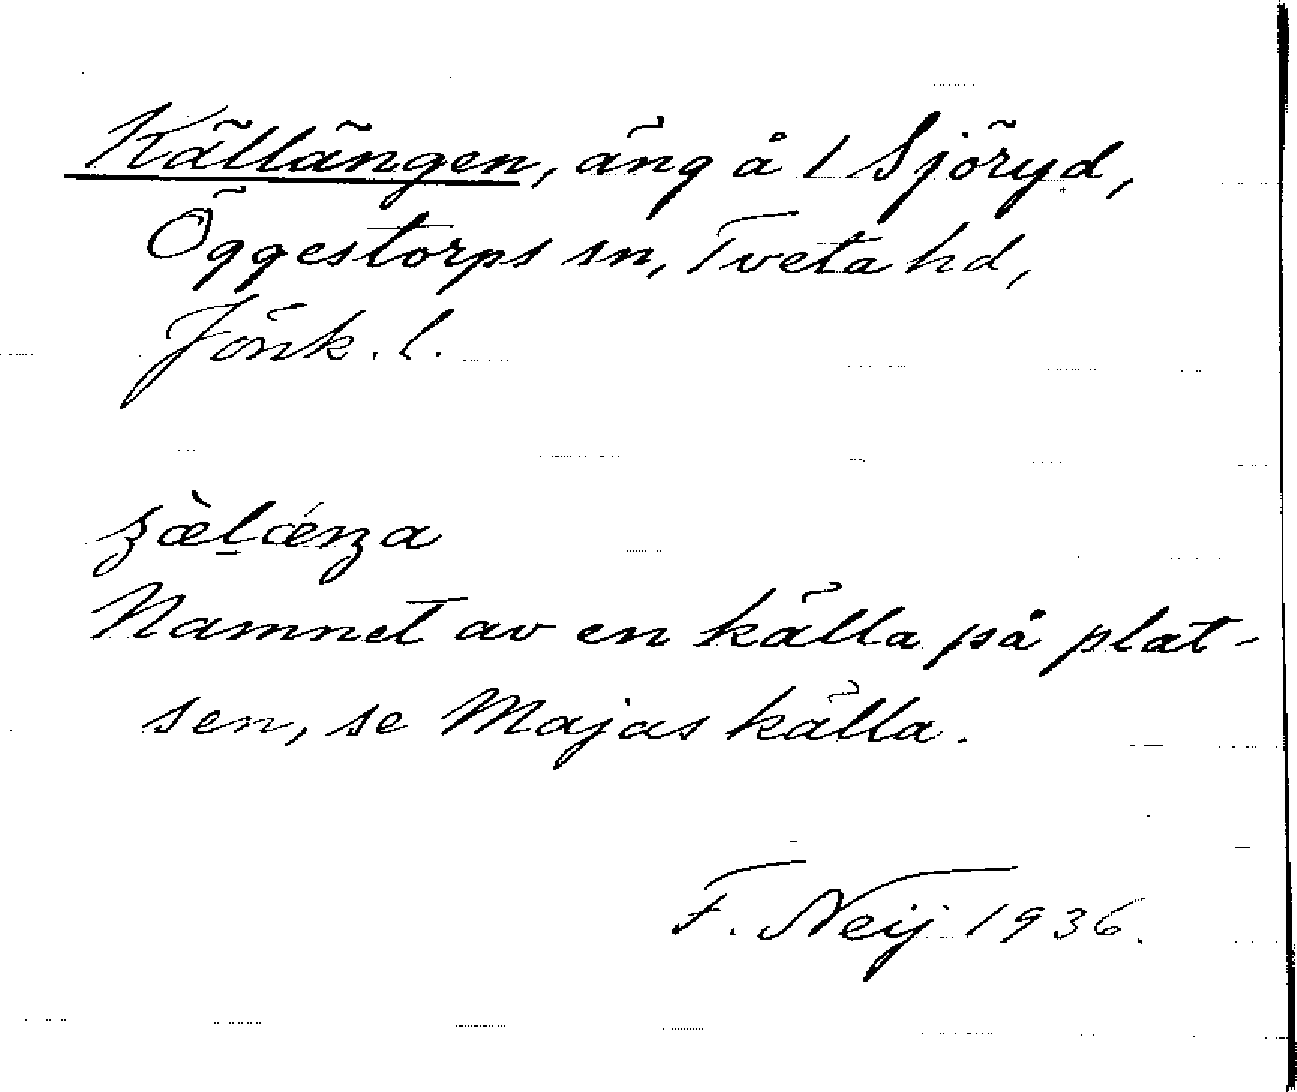 Källängen, äng å 1 Sjöryd,
Öggestorps sn, Tveta hd,
Jönk. l.
Namnet av en källa på plat-
sen, se Majas källa.
F. Neij 1936.